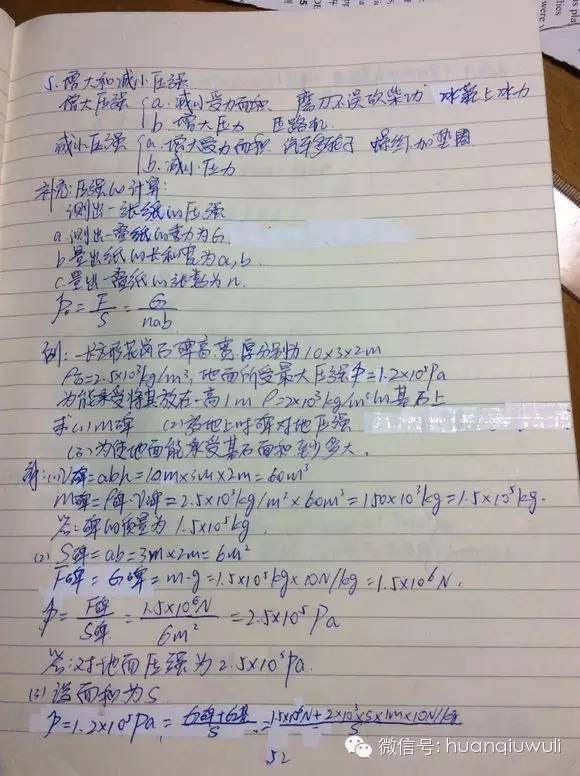 5. 增大和减小压强
增大压强 { a. 减小受力面积 磨刀不误砍柴功 冰鞋上冰刀
b. 增大压力 压路机
减小压强 { a. 增大受力面积 汽车多轮子 螺丝加垫圈
b. 减小压力
补充: 压强的计算:
测出一张纸的压强
a. 测出一叠纸的重力为G.
b. 量出纸的长和宽为a, b.
c. 量出一叠纸的张数为n.
P₀ = F/S = G/nab
例: 一长方形花岗石碑高、宽、厚分别为10×3×2m
ρ石=2.5×10³kg/m³, 地面所受最大压强P=1.2×10⁵Pa
为能承受将其放在一高1m ρ=2×10³kg/m³的基石上
求(1) m碑 (2) 当地上时碑对地压强
(3) 为使地面能承受基石面积至少多大.
解: (1) V碑=abh=10m×3m×2m=60m³
m碑=ρ碑·V碑=2.5×10³kg/m³×60m³=150×10³kg=1.5×10⁵kg.
答: 碑的质量为1.5×10⁵kg.
(2) S碑=ab=3m×2m=6m²
F碑=G碑=m·g=1.5×10⁵kg×10N/kg=1.5×10⁶N.
P = F碑/S碑 = 1.5×10⁶N/6m² = 2.5×10⁵Pa
答: 对地面压强为2.5×10⁵Pa.
(3) 设面积为S
P=1.2×10⁵Pa = G碑+G基/S = 1.5×10⁶N+2×10³×S×1m×10N/kg/S
52
微信号: huanqiuwuli